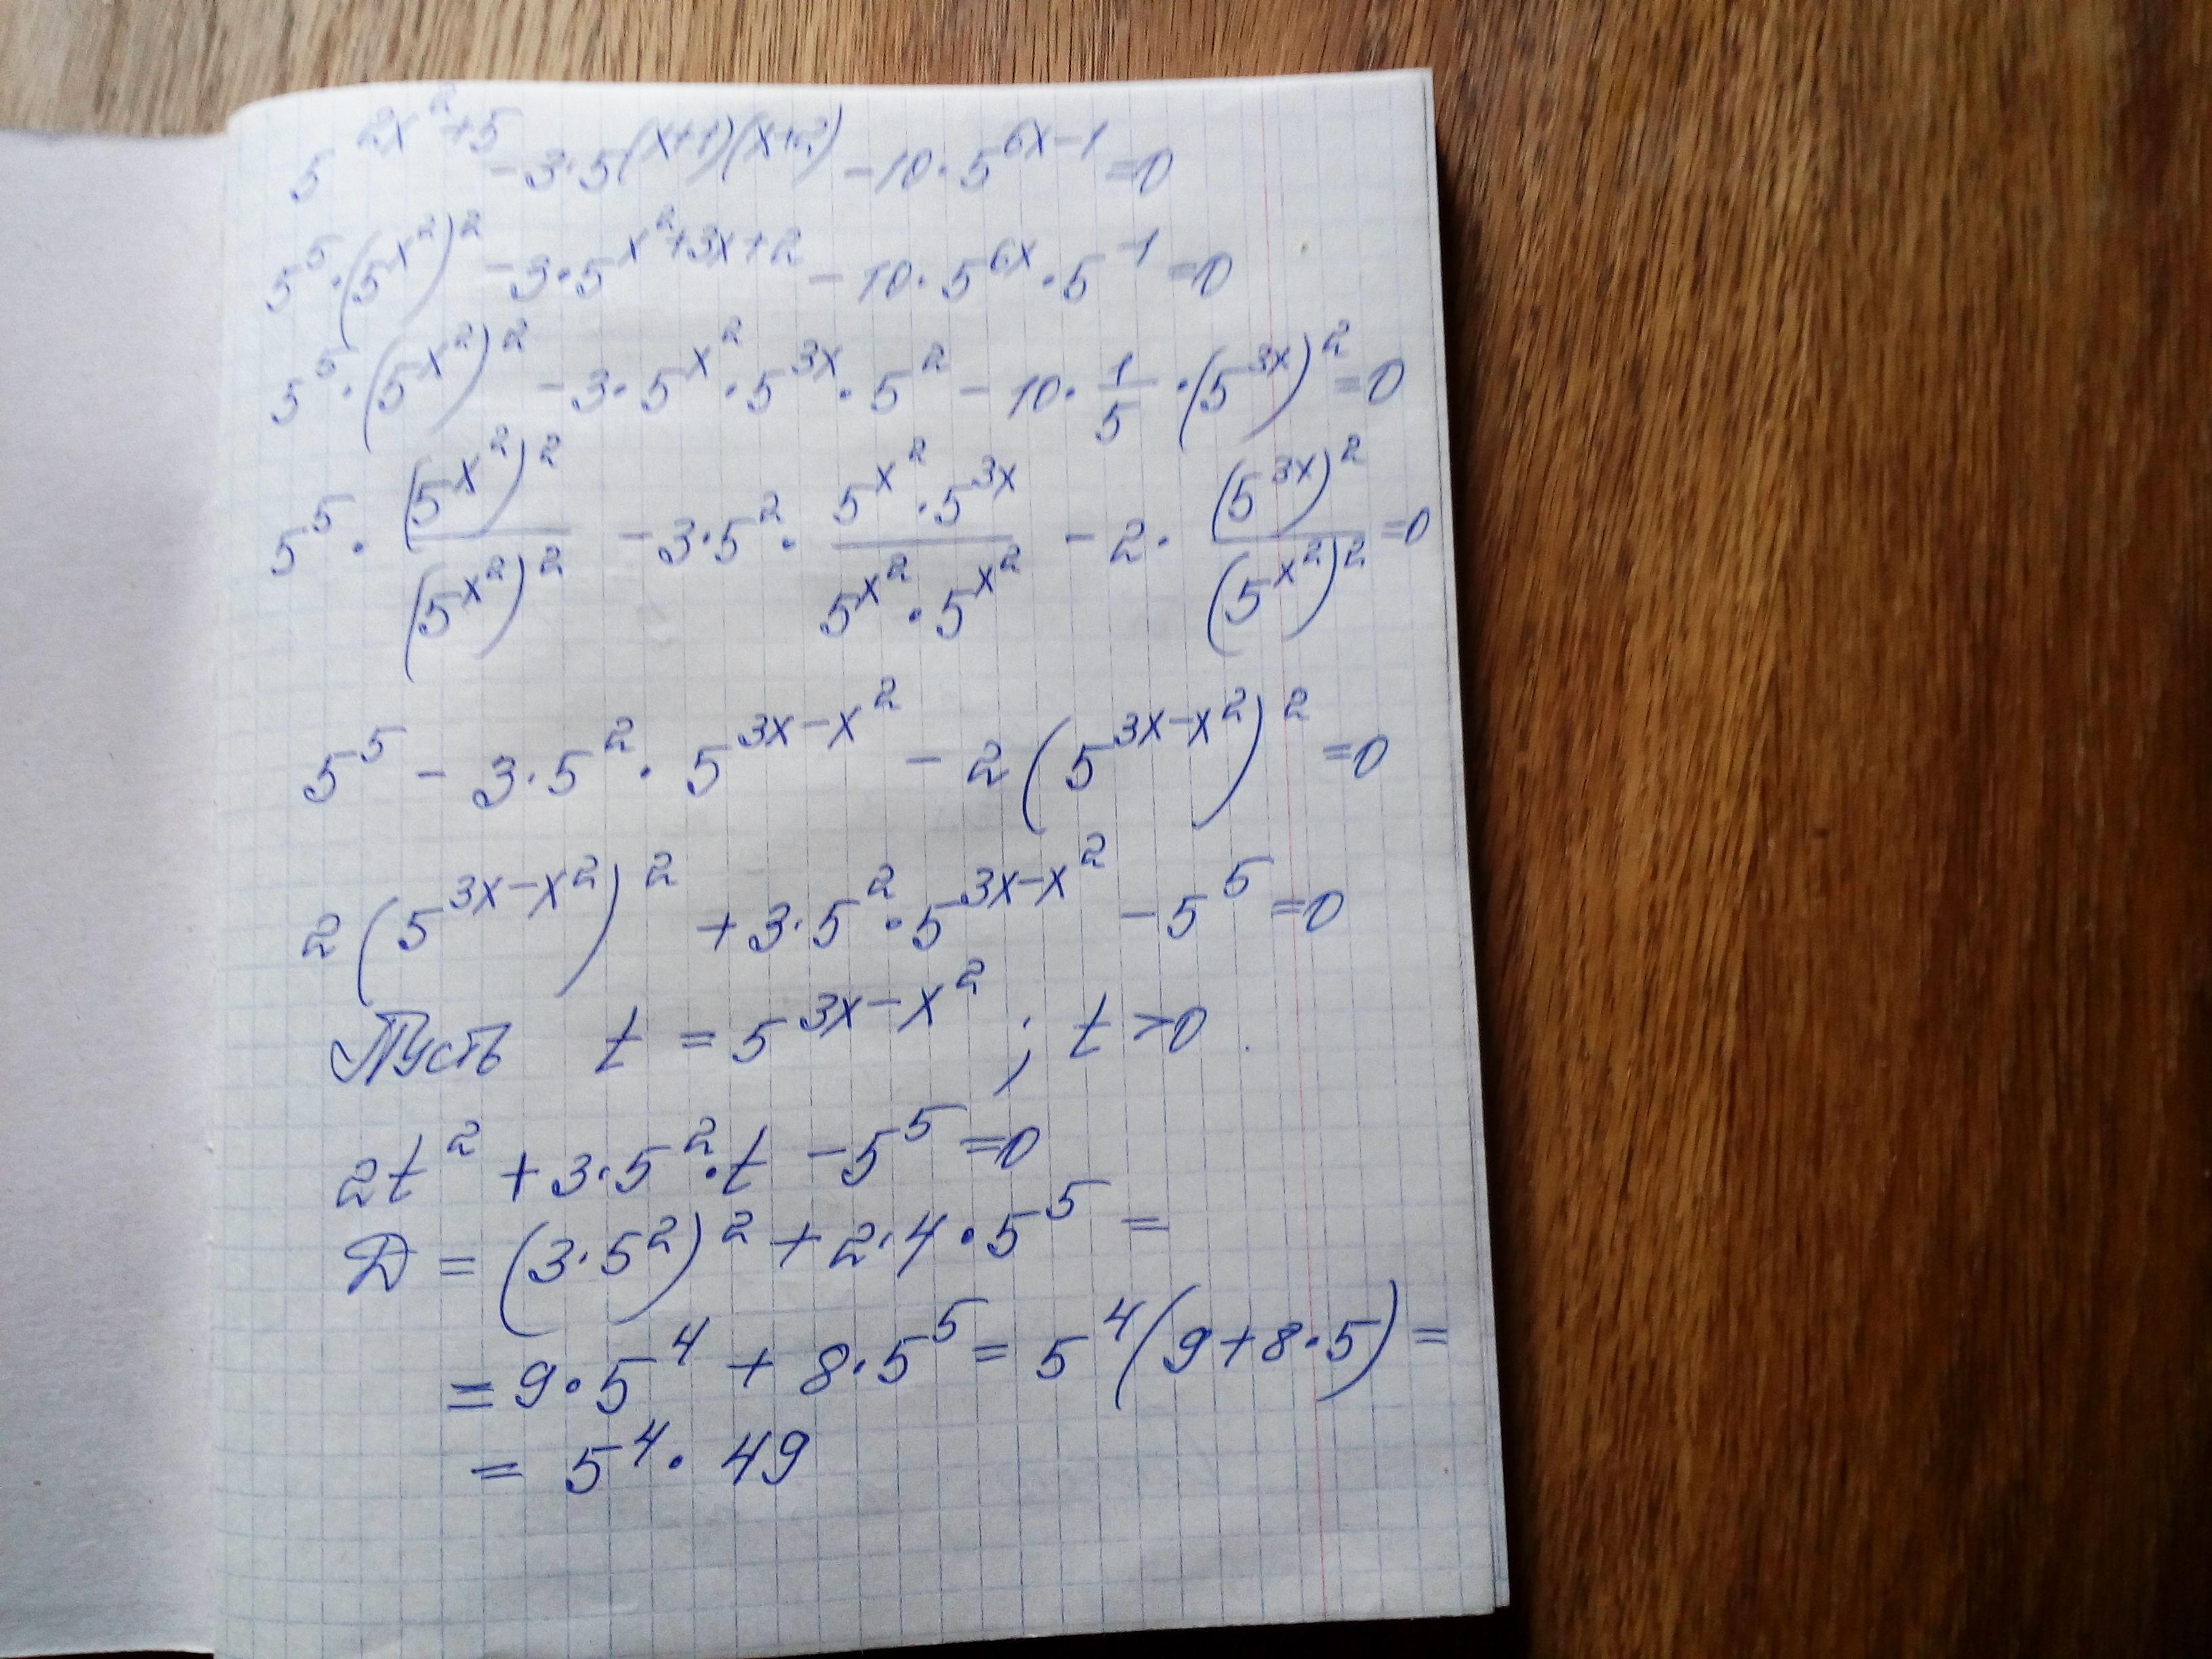 5^(2x²+5) - 3·5^((x+1)(x+2)) - 10·5^(6x-1) = 0
5⁵·(5^(x²))² - 3·5^(x²+3x+2) - 10·5^(6x)·5^(-1) = 0
5⁵·(5^(x²))² - 3·5^(x²)·5^(3x)·5² - 10·1/5·(5^(3x))² = 0
5⁵·(5^(x²))²/(5^(x²))² - 3·5²·(5^(x²)·5^(3x))/(5^(x²)·5^(x²)) - 2·(5^(3x))²/(5^(x²))² = 0
5⁵ - 3·5²·5^(3x-x²) - 2(5^(3x-x²))² = 0
2(5^(3x-x²))² + 3·5²·5^(3x-x²) - 5⁵ = 0
Пусть t = 5^(3x-x²); t > 0.
2t² + 3·5²·t - 5⁵ = 0
Д = (3·5²)² + 2·4·5⁵ =
= 9·5⁴ + 8·5⁵ = 5⁴(9+8·5) =
= 5⁴·49